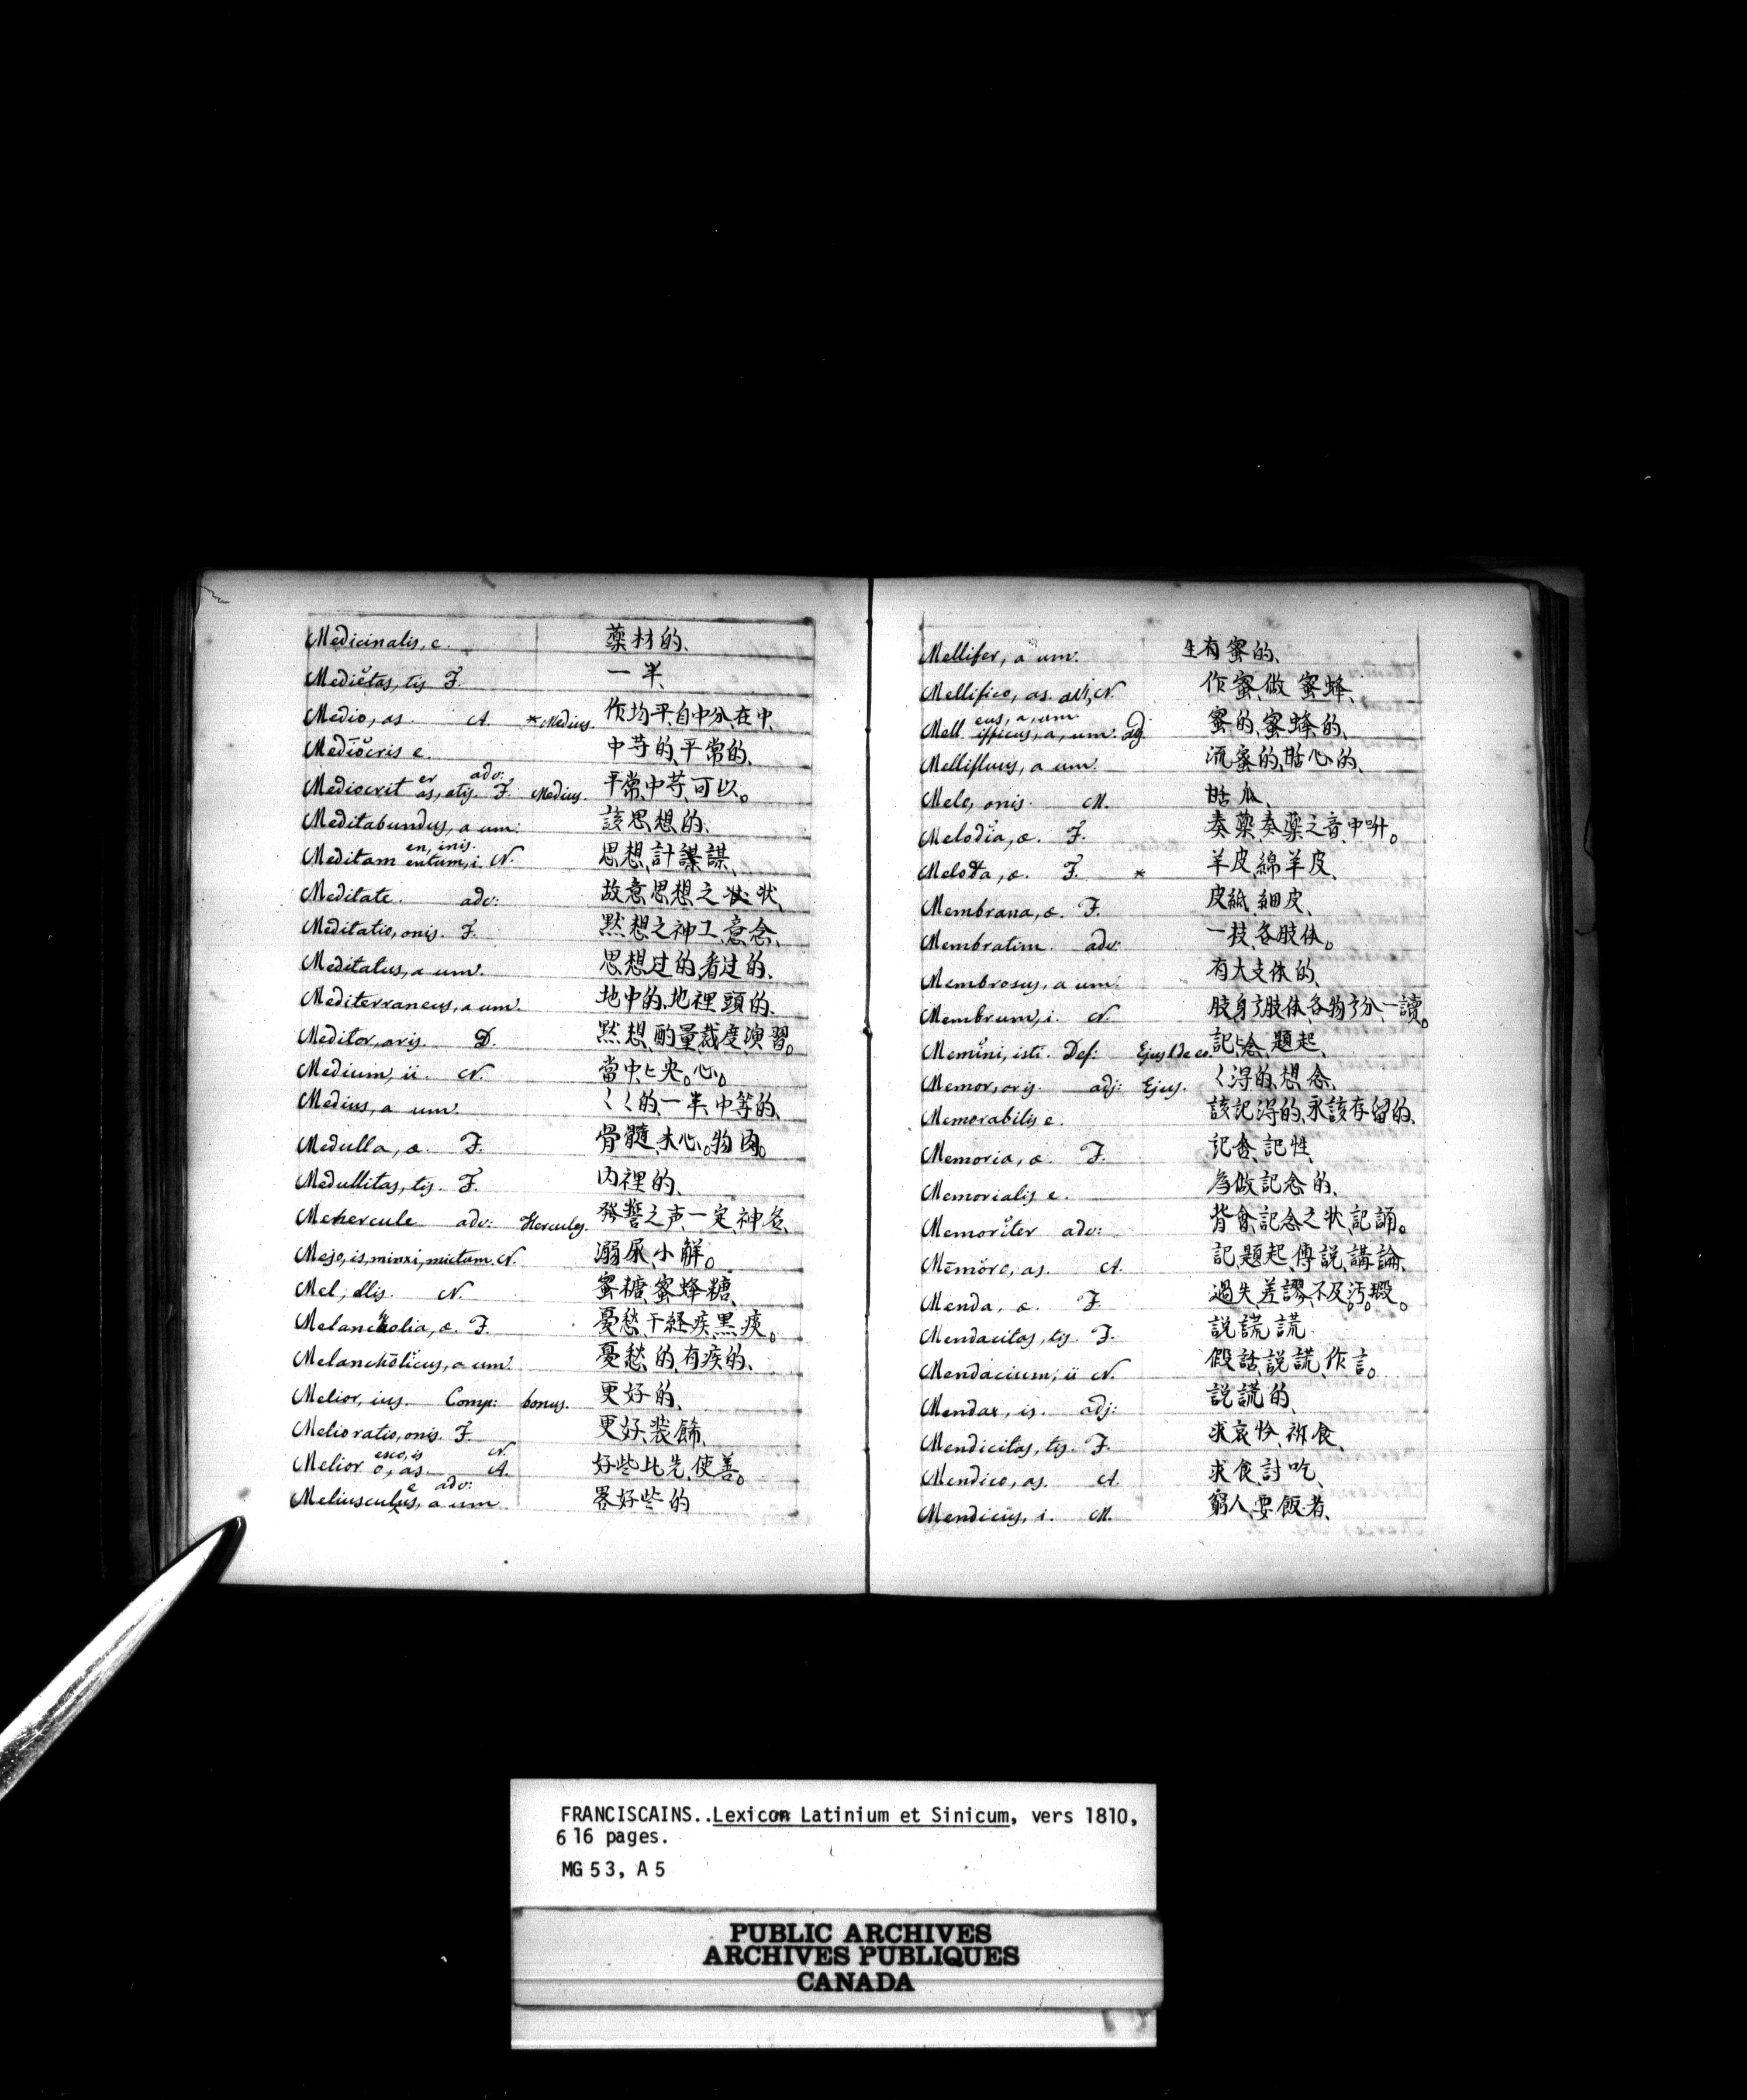 Medicinalis, e. 藥材的、
Mediĕtas, tis F. 一半、
Medio, as. A. *Medius. 作均平、自中分、在中、
Mediŏcris e. 中䓁的、平常的、
Mediocrit er adv: as, atis. F. Medius. 平常、中䓁、可以。
Meditabundus, a um: 該思想的、
Meditam en, inis. entum, i. N. 思想、計謀、
Meditate. adv: 故意思想之状、
Meditatio, onis. F. 黙想之神工、意念、
Meditatus, a um. 思想过的、看过的、
Mediterraneus, a um. 地中的、地裡頭的、
Meditor, aris. D. 黙想、酌量、裁度、演習。
Medium, ii. N. 當中、〻央。心。
Medius, a um. 〻〻的、一半、中等的、
Medulla, æ. F. 骨髓、木心。物肉。
Medullitas, tis. F. 内裡的、
Mehercule adv: Hercules. 發誓之声、一定、神名、
Mejo, is, minxi, mictum. N. 溺尿、小解。
Mel, ellis. N. 蜜糖、蜜蜂糖、
Melancholia, æ. F. 憂愁、干経疾、黒痰。
Melanchŏlicus, a um. 憂愁的、有疾的、
Melior, ius. Comp: bonus. 更好的、
Melioratio, onis. F. 更好、裝餙、
Melior esco, is N. o, as. A. 好些比先、使善。
Meliusculus, a um e adv: 畧好些的
Mellifer, a um. 生有蜜的、
Mellifico, as. avi, N. 作蜜、做蜜蜂、
Mell eus, a, um. ificus, a, um. adj. 蜜的、蜜蜂的、
Mellifluus, a um. 流蜜的、甜心的、
Melo, onis. M. 甜瓜、
Melodĭa, æ. F. 奏藥、奏藥之音、中听。
Melota, æ. F. * 羊皮、綿羊皮、
Membrana, æ. F. 皮紙、細皮、
Membratim. adv: 一枝、各肢体。
Membrosus, a um. 有大支体的、
Membrum, i. N. 肢身、肢体、各物分、一讀。
Memĭni, isti. Def: Ejus l de eo. 記〻念、題起、
Memor, oris. adj: Ejus. 〻淂的、想念、
Memorabilis e. 該記淂的、永該存留的、
Memoria, æ. F. 記含、記性、
Memorialis e. 為做記念的、
Memorĭter adv: 背會、記念之状、記誦。
Mēmŏro, as. A. 記、題起、傳説、講論、
Menda, æ. F. 過失、差謬、不及。汚。瑕。
Mendacitas, tis. F. 説謊謊
Mendacium, ii N. 假話、説謊、作言。
Mendax, is. adj: 説謊的、
Mendicitas, tis. F. 求哀怜、祈食、
Mendico, as. A. 求食、討吃、
Mendicus, i. M. 窮人、要飯者、
FRANCISCAINS..Lexicon Latinium et Sinicum, vers 1810,
616 pages.
MG 53, A 5
PUBLIC ARCHIVES
ARCHIVES PUBLIQUES
CANADA